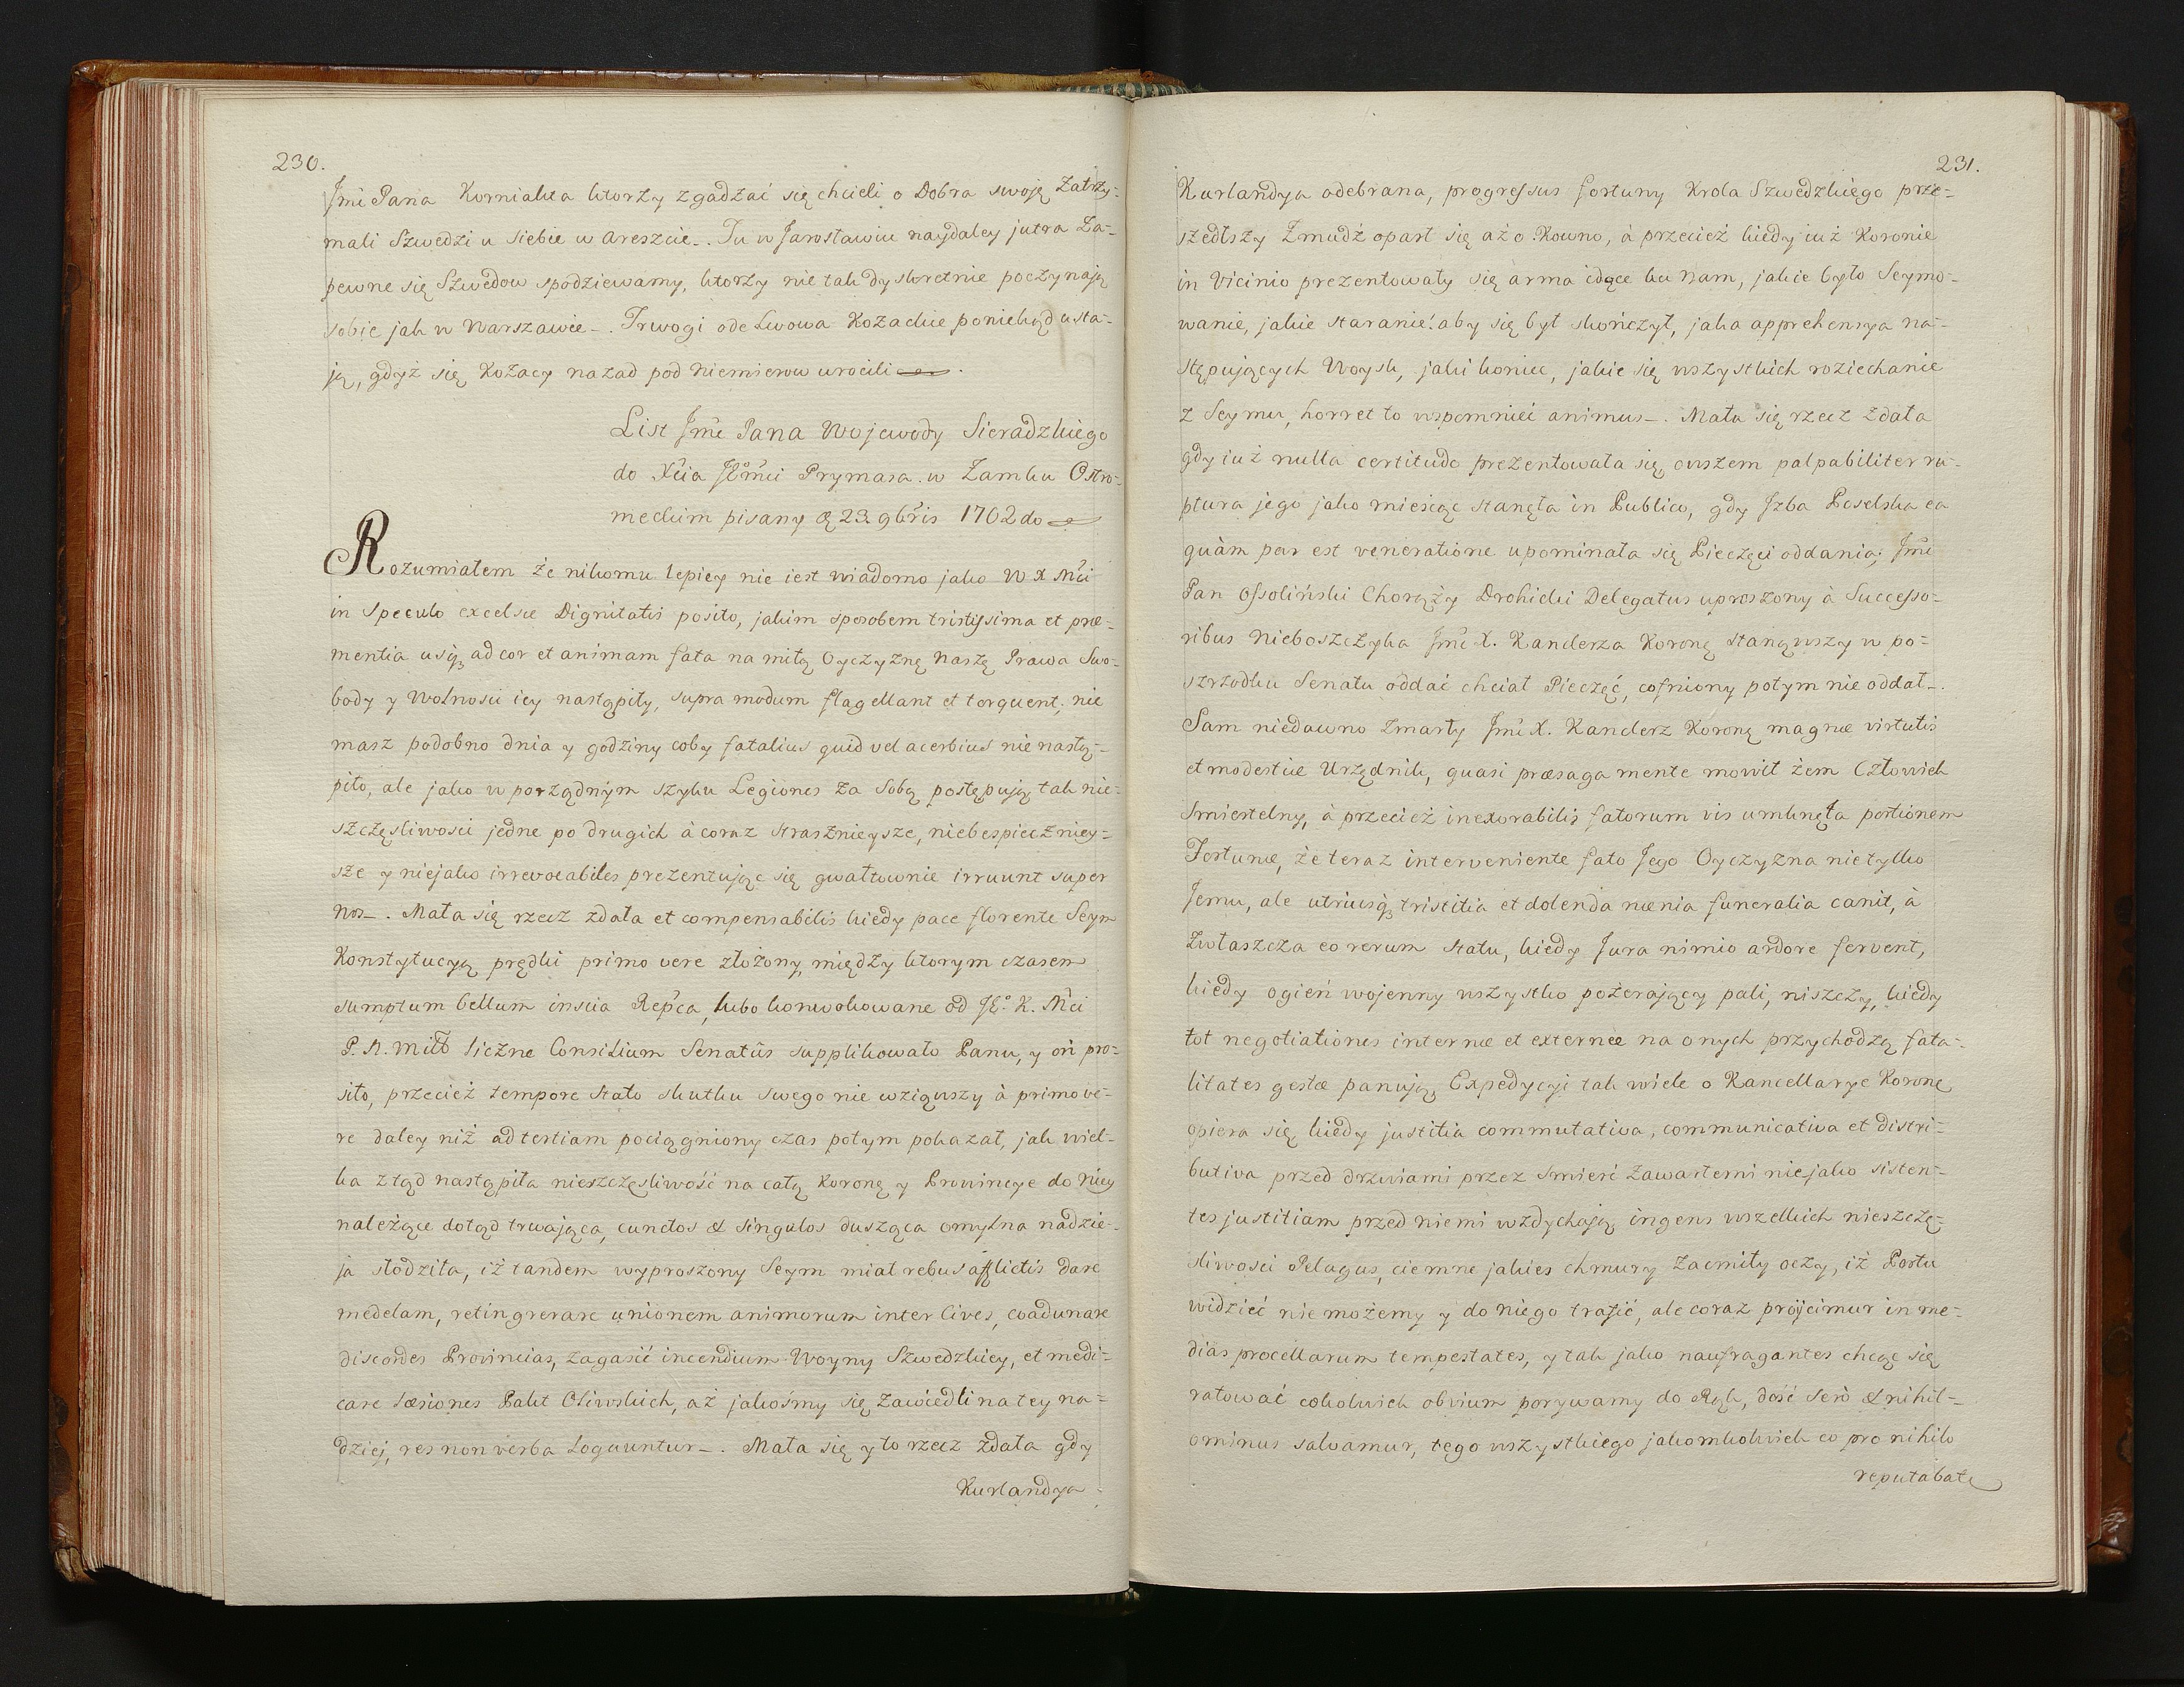 230.
Jmci Pana Korniakta ktorzy zgadzać się chcieli o Dobra swoję Zatrzy-
mali Szwedzi u siebie w areszcie. Tu w Jarosławiu naydaley jutra Za-
pewne się Szwedow spodziewamy, ktorzy nie tak dyskretnie poczynają
sobie jak w Warszawie. Trwogi ode Lwowa Kozackie poniekąd usta-
ją, gdyż się Kozacy nazad pod Niemierow wrocili.
List Jmć Pana Wojewody Sieradzkiego
do Xcia JEmci Prymasa w Zamku Ostro-
meckim pisany d. 23. 9bris 1702do
Rozumiałem że nikomu lepiey nie iest wiadomo jako W X Mci
in speculo excelsæ Dignitatis posito, jakim sposobem tristissima et præ-
mentia usq; ad cor et animam fata na miłą Oyczyznę naszę Prawa Swo-
body y Wolnosci iey nastąpiły, supra modum flagellant et torquent, nie
masz podobno dnia y godziny coby fatalius quid vel acerbius nie nastą-
piło, ale jako w porządnym szyku Legiones za sobą postępują tak nie-
szczęsliwosci jedne po drugich à coraz strasznieysze, niebespiecz niey-
sze y niejako irrevocabiles prezentując się gwałtownie irruunt super
nos. Mała się rzecz zdała et compensabilis kiedy pace florente Seym
Konstytucyą prędki primo vere złożony, między ktorym czasem
sumptum bellum inscia Repca, lubo konwokowane od JE.° K. Mci
P. N. Miło liczne Consilium Senatûs supplikowało Panu, y on pro-
sił, przecież tempore stato skutku swego nie wziąwszy à primo ve-
re daley niż ad tertiam pociągniony czas potym pokazał, jak wiel-
ka ztąd nastąpiła nieszczęsliwość na całą Koronę y Prowincye do niey
należące dotąd trwająca, cunctos & singulos dusząca omylna nadzie-
ja słodziła, iż tandem wyproszony Seym miał rebus afflictis dare
medelam, retingrerare unionem animorum inter Cives, coadunare
discordes Provincias, zagasić incendium Woyny Szwedzkiey, et medi-
care læsiones Pakt Oliwskich, aż jakośmy się zawiedli na tey na-
dziej, res non verba loquuntur. Mała się y to rzecz zdała gdy
Kurlandya
231.
Kurlandya odebrana, progressus fortuny Krola Szwedzkiego prze-
szedłszy Zmudź oparł się aż o Kowno, à przecież kiedy iuż Koronie
in vicinio prezentowały się arma idące ku Nam, jakie było Seymo-
wanie, jakie staranie! aby się był skończył, jaka apprehensya na-
stępujących Woysk, jaki koniec, jakie się wszystkich roziechanie
z Seymu, horret to wspomnieć animus. Mała się rzecz zdała
gdy iuż nulla certitudo prezentowała się owszem palpabiliter ru-
ptura jego jako miesiąc stanęła in Publico, gdy Jzba Poselska ea
quàm par est veneratione upominała się Pieczęci oddania, Jmć
Pan Ossoliński Chorąży Drohicki Delegatus uproszony à Successo-
ribus Nieboszczyka Jmć X. Kanclerza Koronę stanąwszy w po-
szrzodku Senatu oddać chciał Pieczęć, cofniony potym nie oddał.
Sam niedawno Zmarły Jmć X. Kanclerz Koronę magnæ virtutis
et modestiæ Urzędnik, quasi præsaga mente mowił żem Człowiek
smiertelny, à przecież inexorabilis fatorum vis umknęła portionem
Fortunæ, że teraz interveniente fato Jego Oyczyzna nie tylko
Jemu, ale utriusq; tristitia et dolenda nænia funeralia canit, à
zwłaszcza eo rerum statu, kiedy Jura nimio ardore fervent,
kiedy ogień wojenny wszystko pożerający pali, niszczy, kiedy
tot negotiationes internæ et externæ na onych przychodzą fata-
litates gestæ panują, Expedycyi tak wiele o Kancellarye Koronę
opiera się kiedy justitia commutativa, communicativa et distri-
butiva przed drzwiami przez smierć zawartemi niejako sisten-
tes justitiam przed niemi wzdychają, ingens wszelkich nieszczę-
sliwosci Pelagus, ciemne jakies chmury zacmiły oczy, iż Portu
widzieć nie możemy y do niego trafić, ale coraz proijcimur in me-
dias procellarum tempestates, y tak jako naufragantes chcąc się
ratować cokolwiek obvium porywamy do Rąk, dość serò & nihil-
ominus salvamur, tego wszystkiego jakomkolwiek co pro nihilo
reputabat